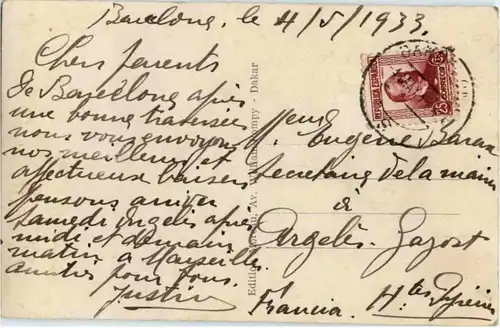 Barcelone, le 4/5/1933.
Chers parents
De Barcelone après
une bonne traversée
nous vous envoyons
nos meilleurs et
affectueux baisers
pensons arriver
Samedi après
midi et demain
matin à Marseille
amitiés pour tous.
Justin
Edition - Dakar
REPUBLICA ESPAÑOLA
25
Eugène
Secrétaire de la mairie
à
Argelès-Gazost
Htes Pyrénées
Francia